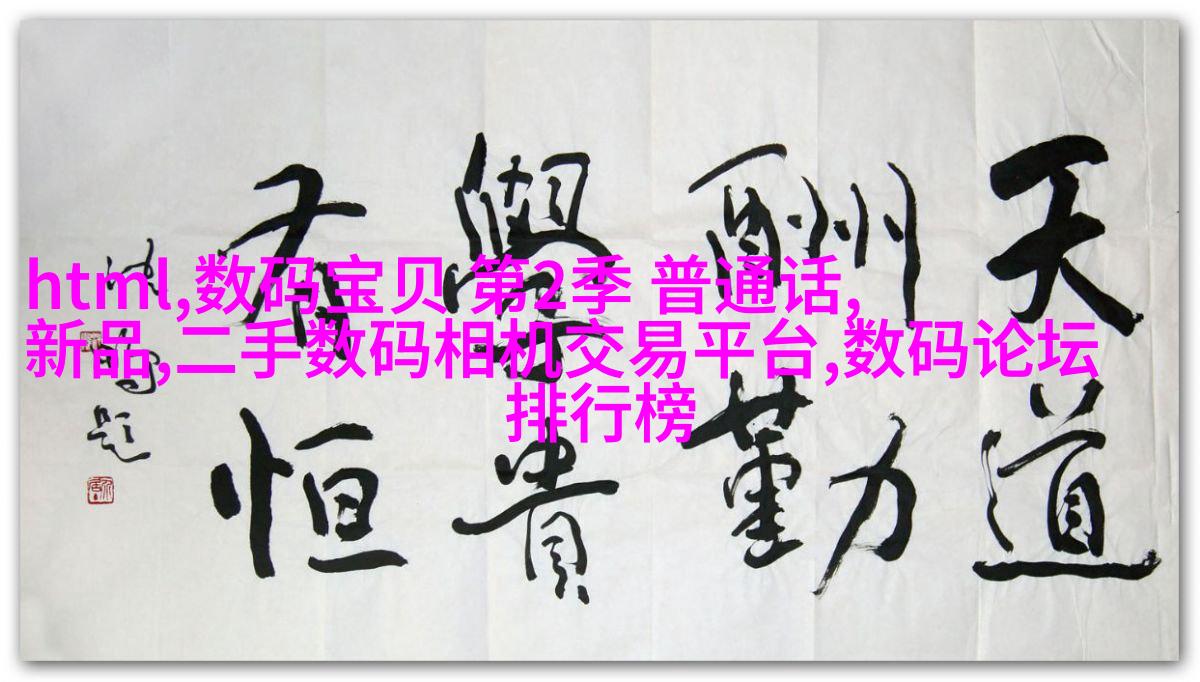 html,数码宝贝 第2季 普通话,
新品,二手数码相机交易平台,数码论坛
排行榜
天道
酬勤
學貴
有恒
题